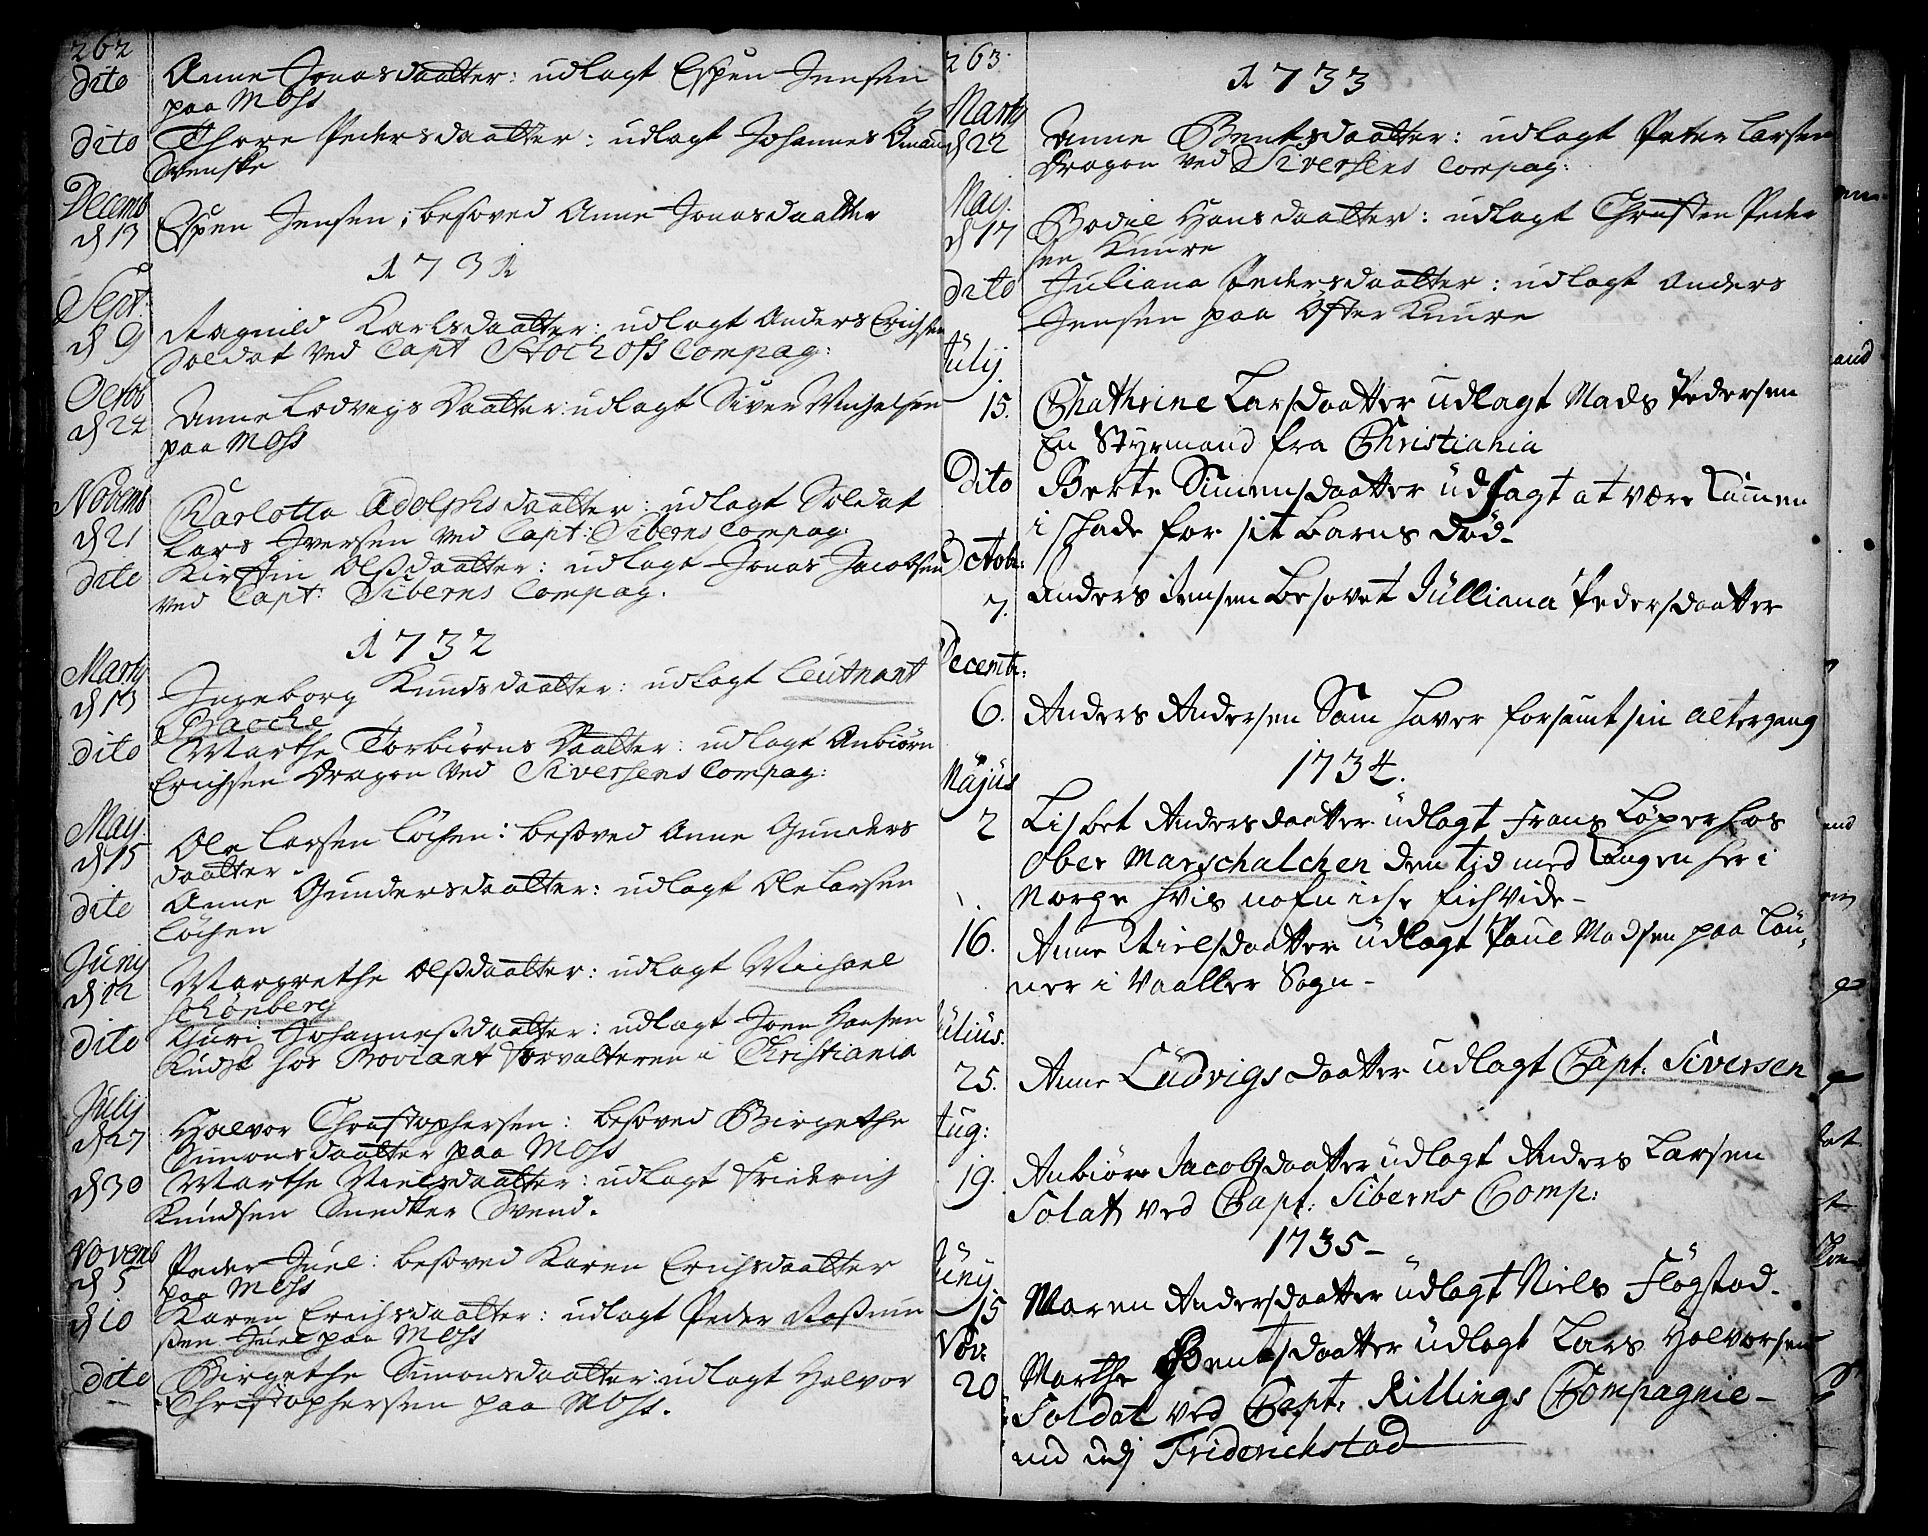 262
dito Anne Jonasdaatter: udlagt Espen Jensen
paa Moss
dito Thore Pedersdaatter: udlagt Johannes
Svenske
Decemb
d 13 Espen Jensen; besoved Anne Jonasdaatter
1731
Sept.
d 9 Ragnild Karlsdaatter: udlagt Anders Erichsen
Soldat ved Capt Stochoffs Compag:
Octob
d 22 Anne Lodvigs Daatter: udlagt Siver Michelsen
paa Moss
Novemb
d 21 Karlotta Adolphsdaatter: udlagt Soldat
Lars Iversen ved Capt: Siberns Compag:
dito Kirstin Olsdaatter: udlagt Jonas Jacobsen
ved Capt: Siberns Compag.
1732
Martij
d 13 Ingeborg Knudsdaatter: udlagt Leutnant
Bacche
dito Marthe Torbiørns Daatter: udlagt Anbiørn
Erichsen Dragon ved Siversens Compag:
May.
d 15 Ole Larsen Løchen: besoved Anne Gunders
daatter.
dito Anne Gundersdaatter: udlagt Ole Larsen
Løchen
Junij
d 12 Margrethe Olsdaatter: udlagt Michael
Schønberg
dito Guri Johannesdaatter: udlagt Joen Hansen
Kudsk hos Proviant Forvalteren i Christiania
Julij
d 27 Halvor Christophersen: besoved Birgethe
Simonsdaatter paa Moss
d 30 Marthe Nielsdaatter: udlagt Friederich
Knudsen Snedker Svend.
Novemb
d 5 Peder Juel: besoved Karen Erichsdaatter
paa Moss
d 10 Karen Erichsdaatter: udlagt Peder Rasmu
ssen Juel paa Moss
dito Birgethe Simonsdaatter: udlagt Halvor
Christophersen paa Moss.
263.
1733
Martij
d 22 Anne Bentsdaatter: udlagt Peter Larsen
Dragon ved Siversens Compag:
May.
d 17 Bodil Hansdaatter: udlagt Christen Peder
sen Kuure
dito Juliana Pedersdaatter: udlagt Anders
Jensen paa Øster Kuure
Julij.
15. Chathrine Larsdaatter udlagt Mads Pedersen
En Styrmand fra Christiania
Dito Berte Simensdaatter udsagt at være kommen
i skade for sit Barns Død-
Octob:
7. Anders Jensen Besovet Julliana Pedersdaatter
Decemb:
6. Anders Andersen Som haver forsømt sin altergang
1734.
Majus
2 Lisbet Andersdaatter udlagt Frans Løper hos
Ober Marschalchen den tid med Kongen her i
Norge hvis nafn iche fich vide-
16. Anne Nielsdaatter udlagt Poul Madsen paa Lou
ner i Vaaller Sogn-
Julius.
25. Anne Ludvigs daatter udlagt Capt. Siversen
Aug:
19. Anbiør Jacobsdaatter udlagt Anders Larsen
Solat ved Capt: Siberns Comp:
1735-
Junij
15 Maren Andersdaatter udlagt Niels Fløgstad.
Nov:
20 Marthe Bentsdaatter udlagt Lars Halvorsen
Soldat ved Capt: Rillings Compagnie-
Friderichstad